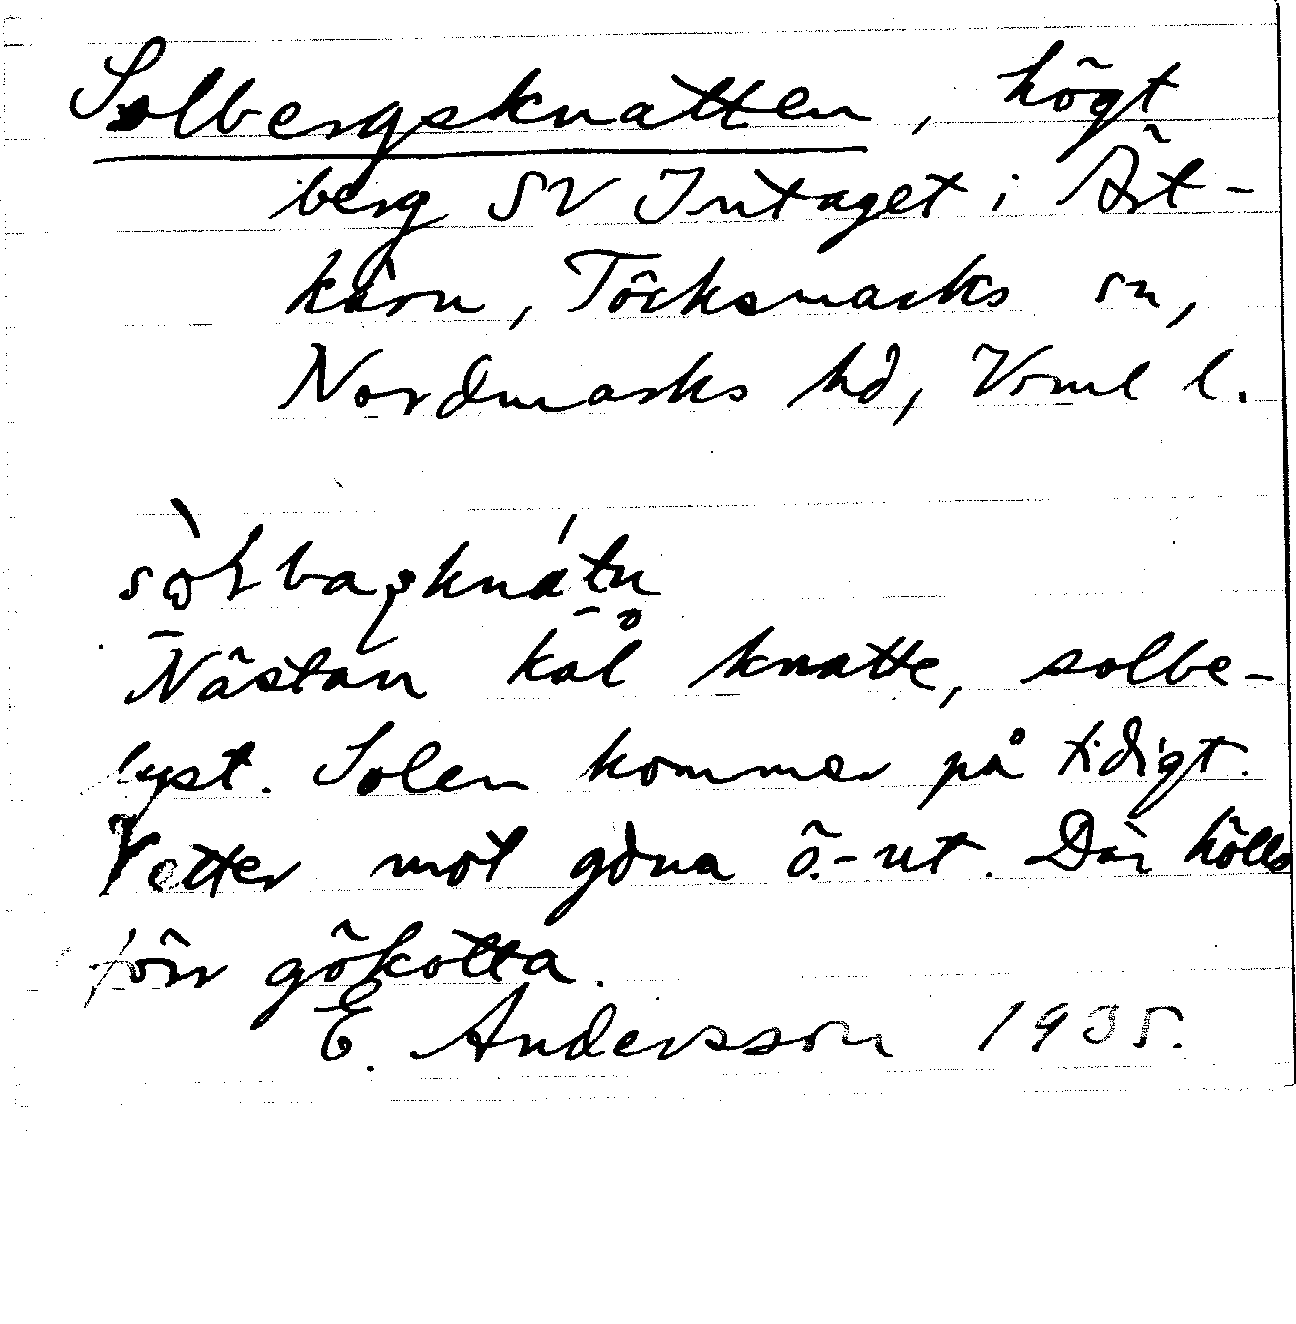 Solbergsknatten, högt
berg SV Intaget i Årt-
kärn, Töcksmarks sn,
Nordmarks hd, Vrml l.
Nästan kal knatte, solbe-
lyst. Solen kommer på tidigt.
Vetter mot göna ö.-ut. Där hölls
förr gökotta.
E. Andersson 1935.